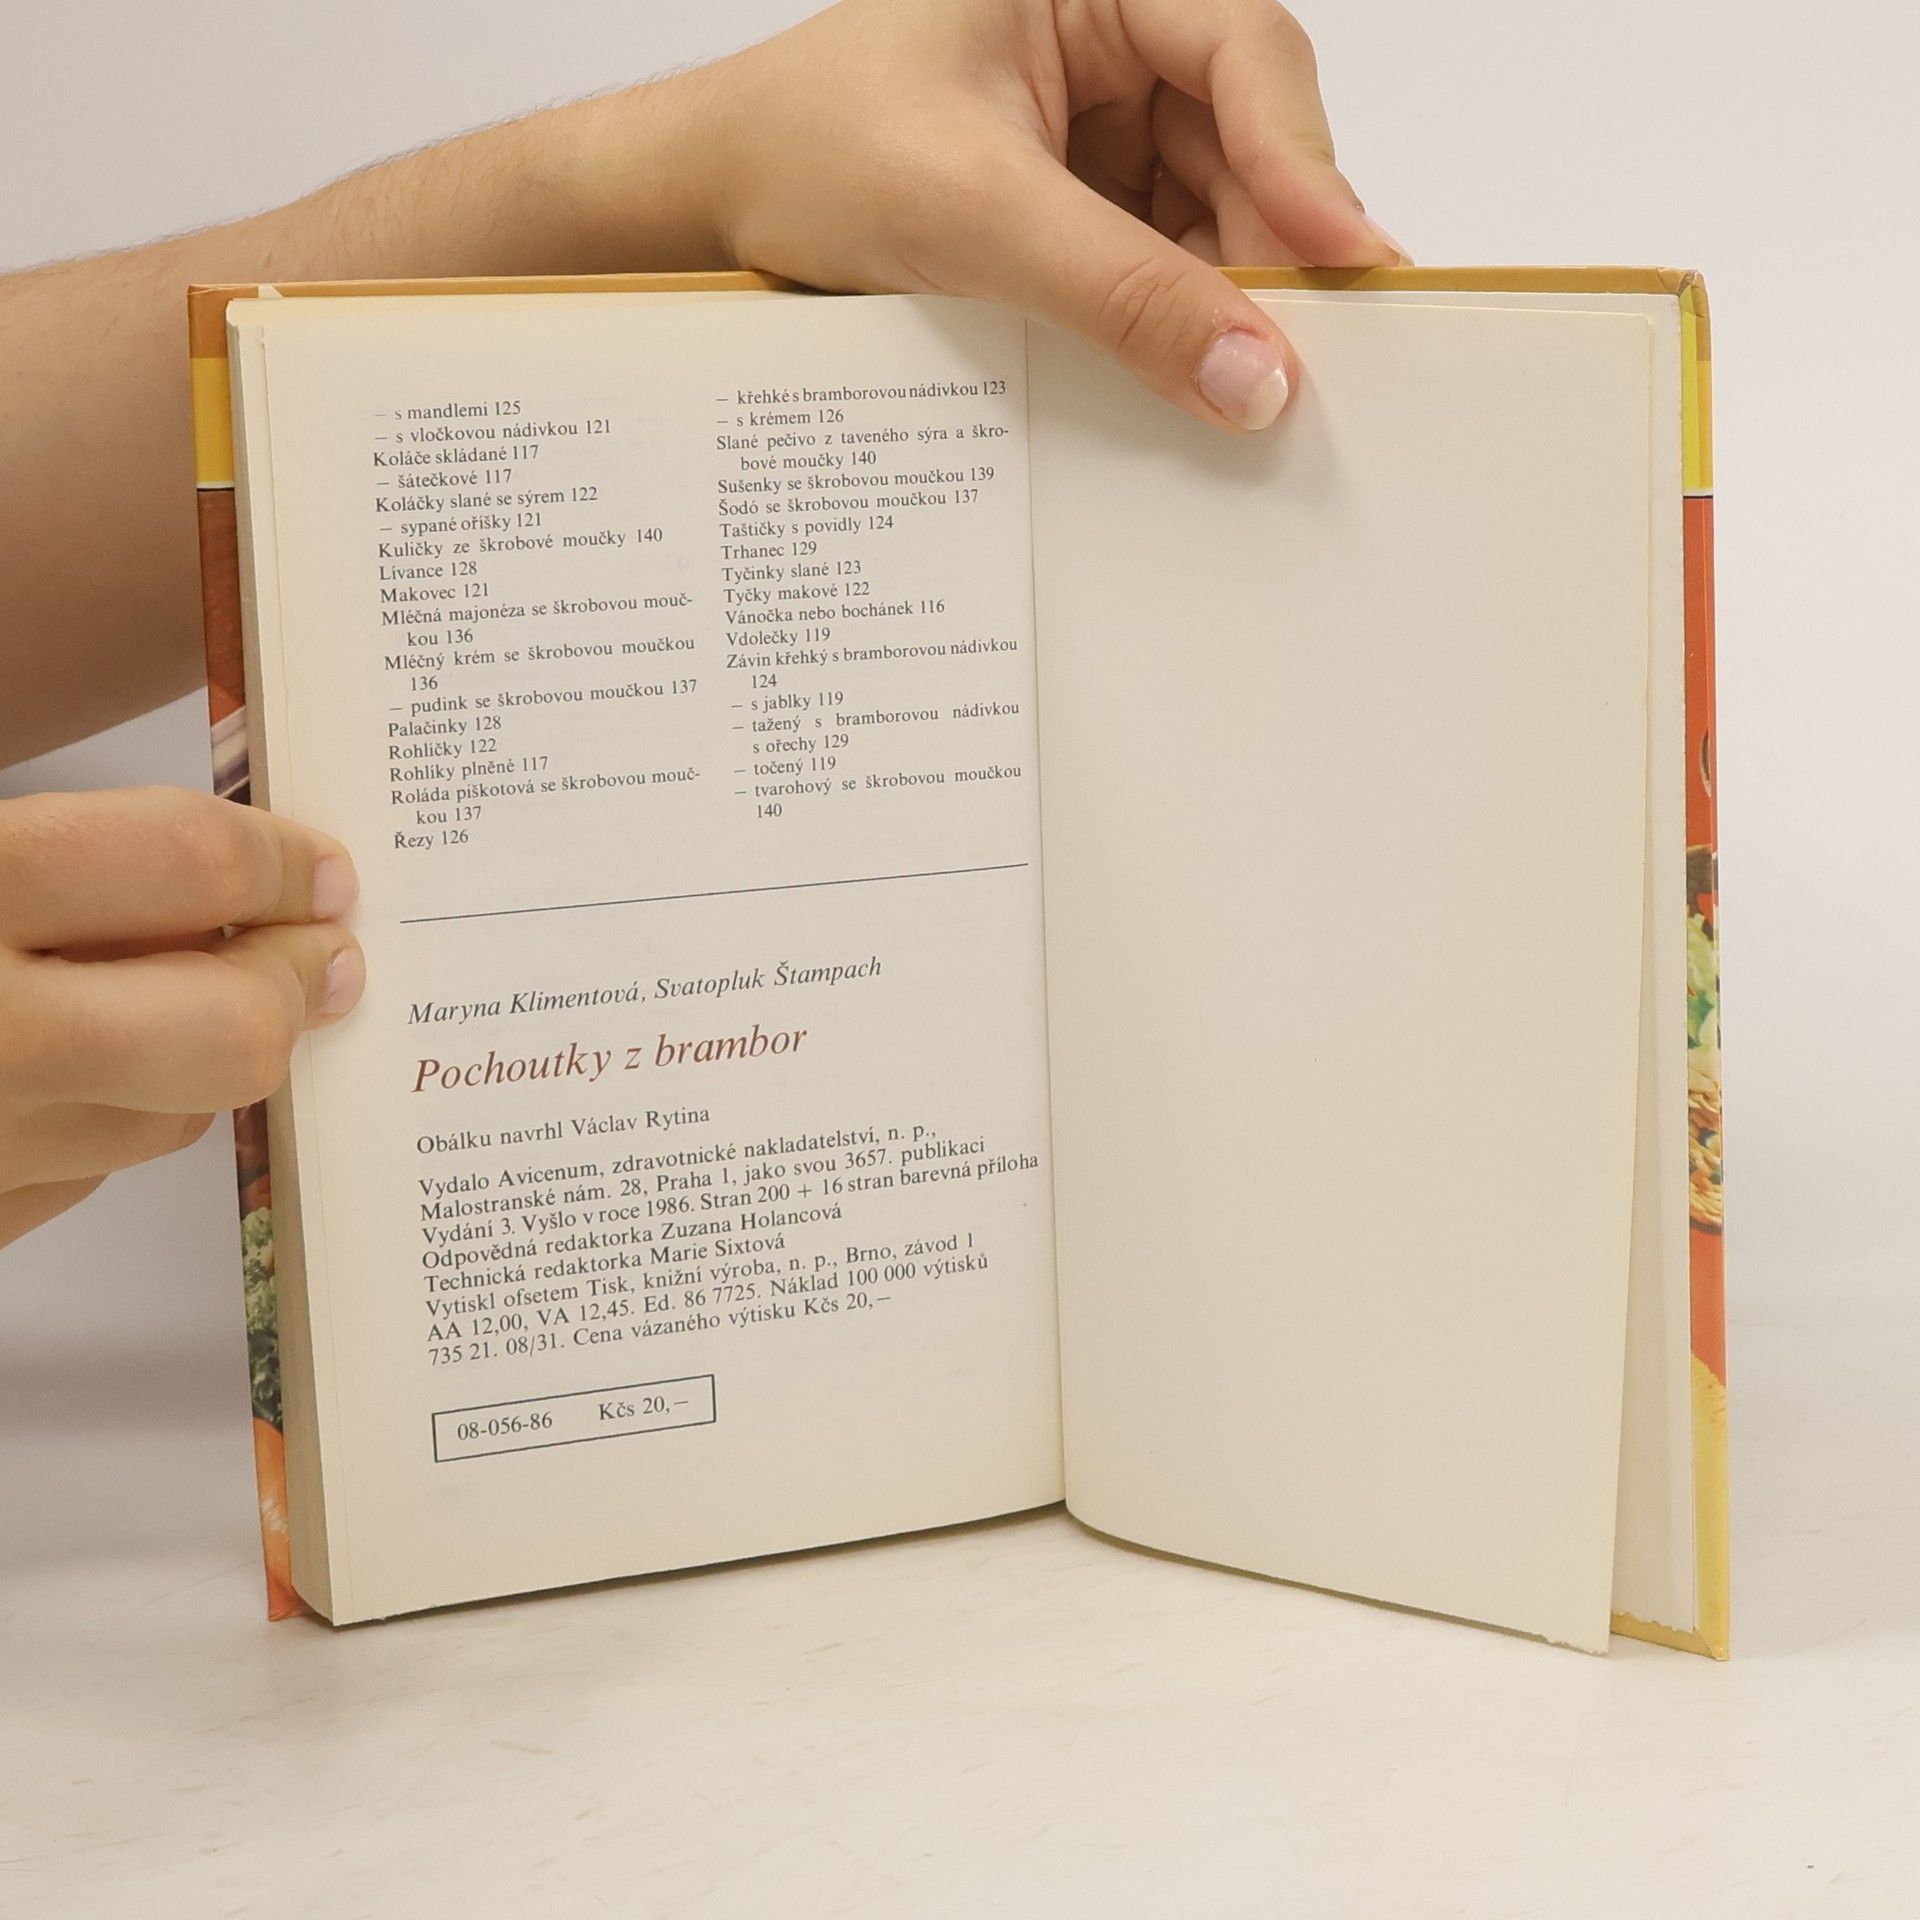 – s mandlemi 125
– s vločkovou nádivkou 121
Koláče skládané 117
– šátečkové 117
Koláčky slané se sýrem 122
– sypané oříšky 121
Kuličky ze škrobové moučky 140
Lívance 128
Makovec 121
Mléčná majonéza se škrobovou mouč-
kou 136
Mléčný krém se škrobovou moučkou
136
– pudink se škrobovou moučkou 137
Palačinky 128
Rohlíčky 122
Rohlíky plněné 117
Roláda piškotová se škrobovou mouč-
kou 137
Řezy 126
– křehké s bramborovou nádivkou 123
– s krémem 126
Slané pečivo z taveného sýra a škro-
bové moučky 140
Sušenky se škrobovou moučkou 139
Šodó se škrobovou moučkou 137
Taštičky s povidly 124
Trhanec 129
Tyčinky slané 123
Tyčky makové 122
Vánočka nebo bochánek 116
Vdolečky 119
Závin křehký s bramborovou nádivkou
124
– s jablky 119
– tažený s bramborovou nádivkou
s ořechy 129
– točený 119
– tvarohový se škrobovou moučkou
140
Maryna Klimentová, Svatopluk Štampach
Pochoutky z brambor
Obálku navrhl Václav Rytina
Vydalo Avicenum, zdravotnické nakladatelství, n. p.,
Malostranské nám. 28, Praha 1, jako svou 3657. publikaci
Vydání 3. Vyšlo v roce 1986. Stran 200 + 16 stran barevná příloha
Odpovědná redaktorka Zuzana Holancová
Technická redaktorka Marie Sixtová
Vytiskl ofsetem Tisk, knižní výroba, n. p., Brno, závod 1
AA 12,00, VA 12,45. Ed. 86 7725. Náklad 100 000 výtisků
735 21. 08/31. Cena vázaného výtisku Kčs 20,–
08-056-86 Kčs 20,–